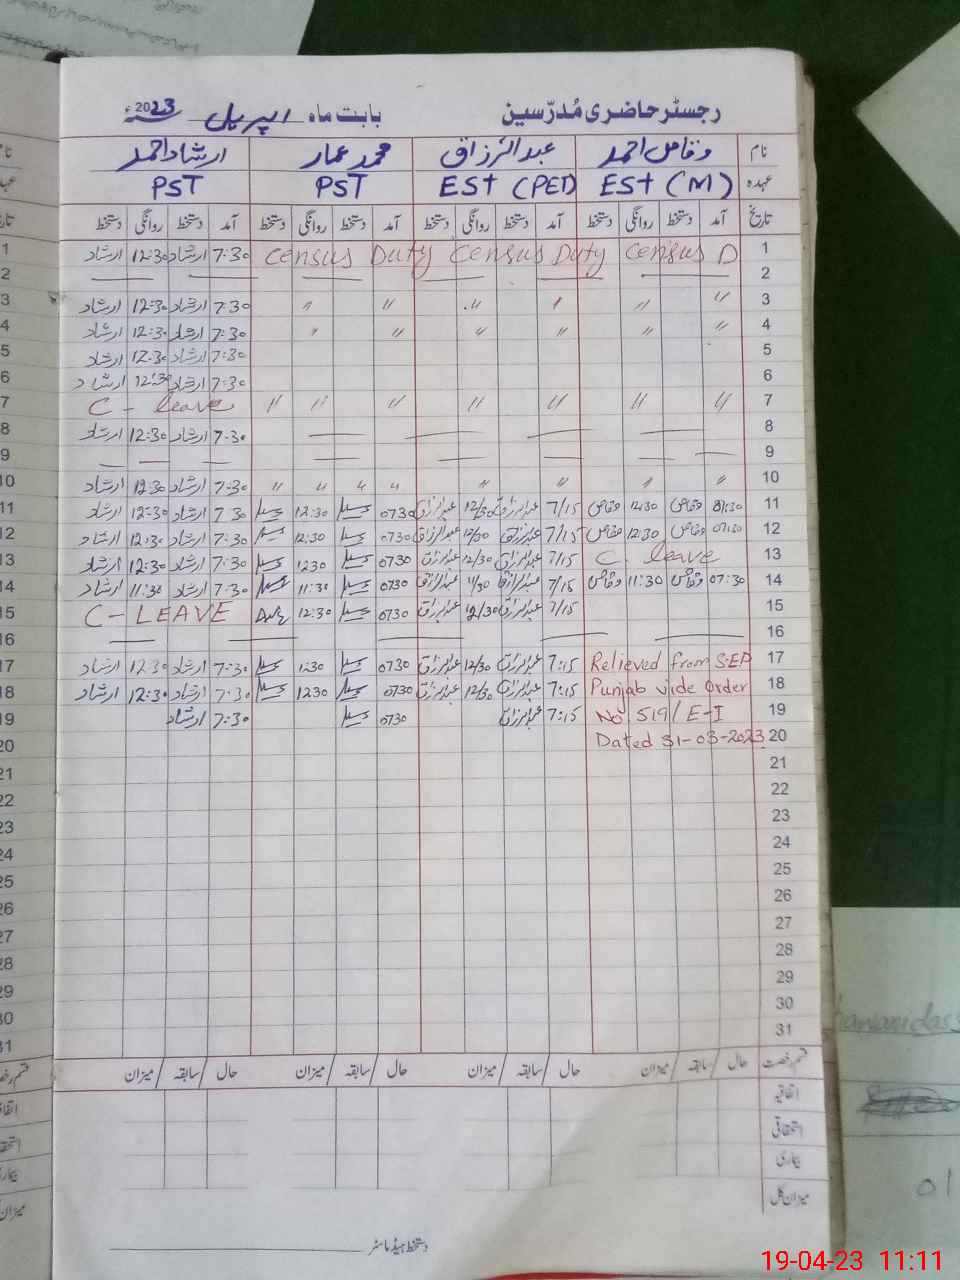 رجسٹر حاضری مُدرّسین بابت ماہ اپریل سنہ 2023ء
نام وقاص احمد عبدالرزاق محمد عمار ارشاد احمد
عہدہ EST (M) EST (PET) PST PST
تاریخ آمد دستخط روانگی دستخط آمد دستخط روانگی دستخط آمد دستخط روانگی دستخط آمد دستخط روانگی دستخط
1 Census D Census Duty Census Duty 7:30 ارشاد 12:30 ارشاد
2 — — — — — —
3 〃 〃 〃 〃 〃 〃 7:30 ارشاد 12:30 ارشاد
4 〃 〃 〃 〃 〃 〃 7:30 ارشاد 12:30 ارشاد
5 7:30 ارشاد 12:30 ارشاد
6 7:30 ارشاد 12:30 ارشاد
7 〃 〃 〃 〃 〃 〃 〃 C - leave
8 — — — — 7:30 ارشاد 12:30 ارشاد
9 — — — — — — —
10 〃 〃 〃 〃 〃 〃 〃 7:30 ارشاد 12:30 ارشاد
11 07:30 وقاص 12:30 وقاص 7/15 عبدالرزاق 12/30 عبدالرزاق 0730 12:30 7:30 ارشاد 12:30 ارشاد
12 07:30 وقاص 12:30 وقاص 7/15 عبدالرزاق 12/30 عبدالرزاق 0730 12:30 7:30 ارشاد 12:30 ارشاد
13 C. leave 7/15 عبدالرزاق 12/30 عبدالرزاق 0730 1230 7:30 ارشاد 12:30 ارشاد
14 07:30 وقاص 11:30 وقاص 7/15 عبدالرزاق 11/30 عبدالرزاق 0730 11:30 7:30 ارشاد 11:30 ارشاد
15 7/15 عبدالرزاق 12/30 عبدالرزاق 0730 12:30 C - LEAVE
16 — — — — —
17 Relieved from SEP 7:15 عبدالرزاق 12/30 عبدالرزاق 0730 7:30 ارشاد 12:30 ارشاد
18 Punjab vide order 7:15 عبدالرزاق 12/30 عبدالرزاق 0730 1230 7:30 ارشاد 12:30 ارشاد
19 No 519/E-I 7:15 عبدالرزاق 0730 7:30 ارشاد
20 Dated 31-03-2023
21
22
23
24
25
26
27
28
29
30
31
قسم رخصت حال / سابقہ / میزان حال / سابقہ / میزان حال / سابقہ / میزان حال / سابقہ / میزان
اتفاقیہ
استحقاقی
بیماری
میزان کل
دستخط ہیڈ ماسٹر
19-04-23 11:11